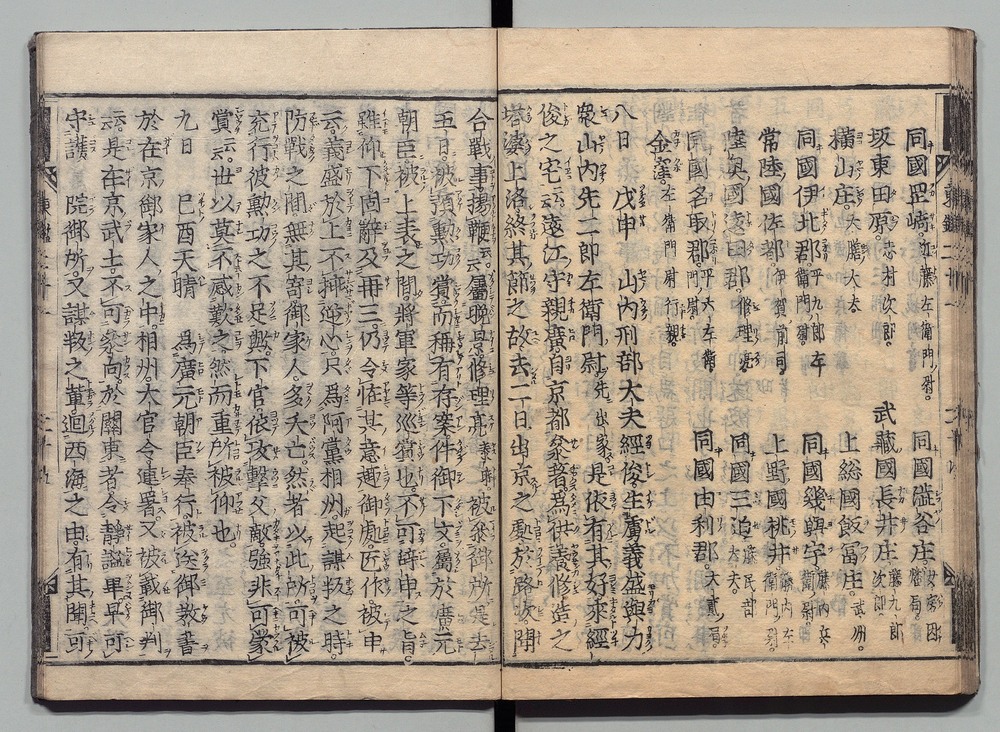 同國罡崎近藤左衛門尉。 同國澁谷庄女房因幡局。
坂東田原忠村次郎。 武藏國長井庄藤九郎次郎
横山庄大膳大夫 上総國飯冨庄武州。
同國伊北郡平九郎左衛門尉 同國幾與宇藤内左衛門尉
常陸國佐都伊賀前司 上野國桃井藤内左衛門尉。
陸奥國遠田郡修理亮 同國三迫藤民部大夫。
同國名取郡平六左衛門尉 同國由利郡大貳局
金窪左衛門尉行親。
八日 戊申 山内刑部大夫經俊生虜義盛與力
衆山内先二郎左衛門尉先出家是依有其好來經
俊之宅云遠江守親廣自京都參着為供養修造之
塔婆上洛終其節之故去二日出京之處於路次聞
合戰事揚鞭云屬晩景修理亮泰時被參御所是去
五日被預勲功賞而稱有存案件御下文屬於廣元
朝臣被上表之間將軍家等巡賞也不可辞申之旨
雖仰下固辭及再三仍令恠其意趣御處匠作被申
云義盛於上不挿逆心只為阿黨相州起謀叛之時
防戰之間無其咎御家人多夭亡然者以此所可被
充行彼勲功之不足歟下官依攻擊父敵強非可蒙
賞云世以莫不感歎之然而重所被仰也。
九日 己酉天晴 為廣元朝臣奉行被送御教書
於在京御家人之中相州大官令連署又被載御判
云是在京武士不可參向於關東者令靜謐畢早可
守護 院御所又謀叛之輩廻西海之由有其聞可